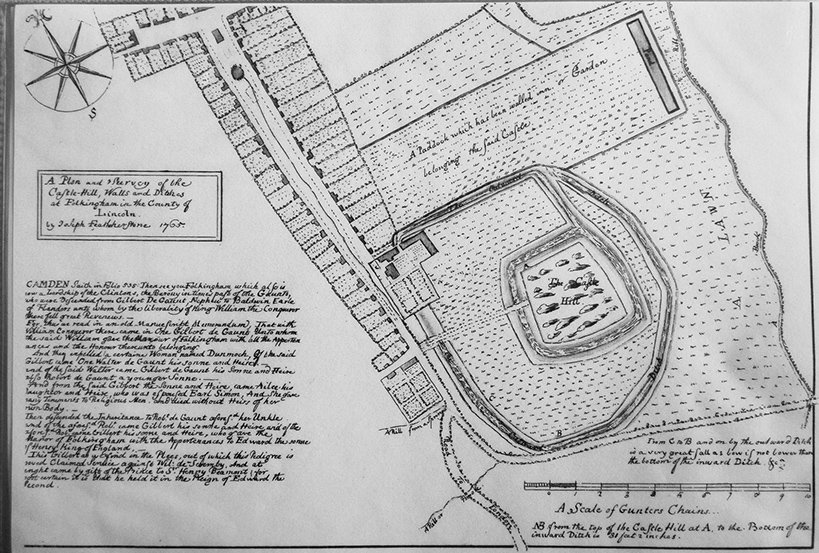 S
A Plan and Survey of the
Castle-Hill, Walls and Ditches
at Folkingham in the County of
Lincoln.
by Joseph Featherstone 1765.
CAMDEN Saith in Folio 535 Then see you Folkingham which also is
now a Lordship of the Clintons, the Barony in times past of the Gaunts,
who were Descended from Gilbert De Gaunt, Nephew to Baldwin Earle
of Flanders unto whom by the liberality of King William the Conqueror
there fell great Revenues.
For, thus we read in an old Manuscript Memorandum, That with
William Conqueror there came in One Gilbert de Gaunt Unto whom
the said William gave the Mannour of Folkingham with all the Apperten
ances and the Honour thereunto belonging.
And they expelled a certaine Woman named Dunmock, Of the said
Gilbert came One Walter de Gaunt his Sonne and Heire
and of the said Walter came Gilbert de Gaunt his Sonne and Heire
also Robert de Gaunt a younger Sonne.
And from the said Gilbert the Sonne and Heire, came Alice his
Daughter and Heire, who was espoused Earl Simon, And She gave
many Tenements to Religious Men and died without Heirs of her
own Body.
Then descended the Inheritance to Robt. de Gaunt her Unkle
and of the Robt. came Gilbert his Sonne and Heire and of the
Gilbert his Sonne and Heire, who gave the
Manor of Folkingham with the Appertenences to Edward the Sonne
of Henry King of England.
This Gilbert as I find in the Plees, out of which this Pedigree is
proved Claimed Service against Wil. de Scremby, And at
lenght came by gift of the Prince to Sr. Henry Beamont; for
most certain it is that he held it in the Reign of Edward the
Second.
A Paddock which has been walled in on Garden
belonging the said Castle
Pond
The Outward Ditch
The Castle
Hill
A
LAWN
A
Rill
Beck
Ditch
Outward
B
A Rill
A Rill
Road to
From C to B and on by the outward Ditch
is a very great fall as low if not lower than
the bottom of the inward Ditch. &c.
1 2 3 4 5 6 7 8 9 10
A Scale of Gunters Chains..
NB from the top of the Castle Hill at A, to the Bottom of the
inward Ditch is 31 feet 2 inches.